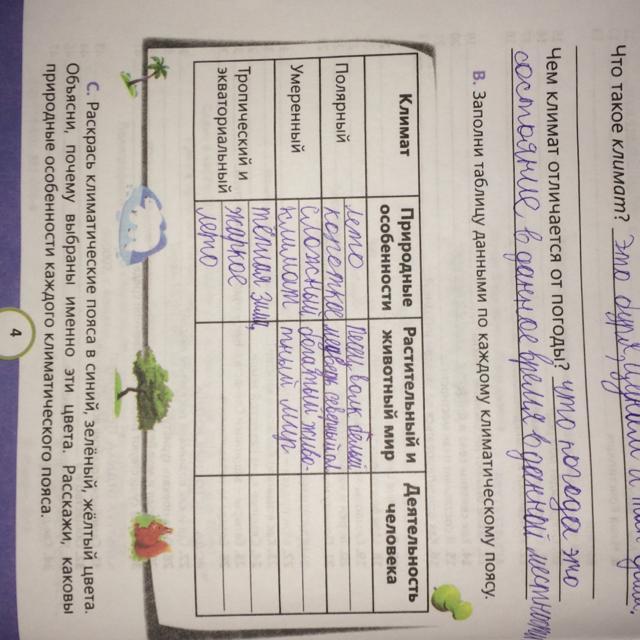 Что такое климат? это
Чем климат отличается от погоды? что погода это
состояние в данное время в данной местности
B. Заполни таблицу данными по каждому климатическому поясу.
Климат
Природные особенности
Растительный и животный мир
Деятельность человека
Полярный
лето
короткое
песец, волк белый
медведь
Умеренный
сложный
климат
богатый живо-
тный мир
Тропический и экваториальный
тёплая зима,
жаркое
лето
C. Раскрась климатические пояса в синий, зелёный, жёлтый цвета.
Объясни, почему выбраны именно эти цвета. Расскажи, каковы
природные особенности каждого климатического пояса.
4